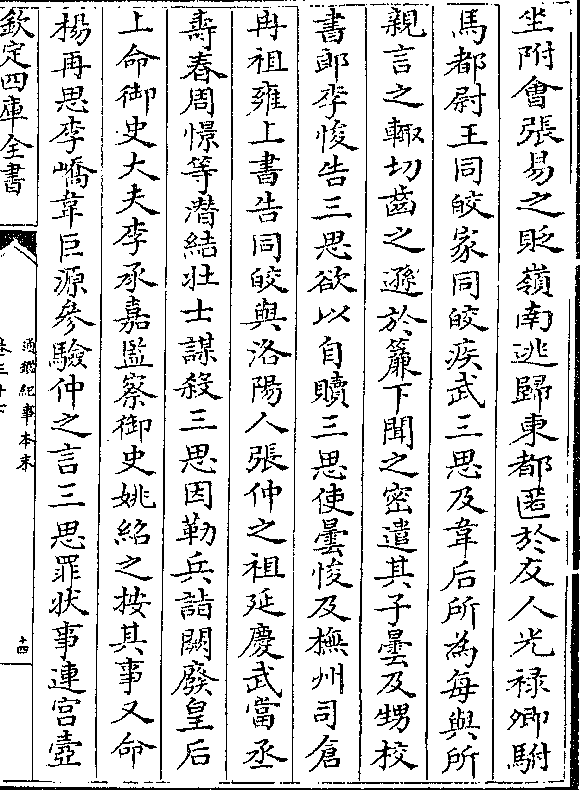 坐附會張易之貶嶺南逃歸東都匿於友人光禄卿駙
馬都尉王同皎家同皎疾武三思及韋后所為每與所
親言之輙切齒之遜於簾下聞之密遣其子曇及甥校
書郎李悛告三思欲以自贖三思使曇悛及撫州司倉
冉祖雍上書告同皎與洛陽人張仲之祖延慶武當丞
壽春周憬等潛結壮士謀殺三思因勒兵詣闕廢皇后
上命御史大夫李承嘉監察御史姚紹之按其事又命
楊再思李嶠韋巨源參驗仲之言三思罪狀事連宫壼
欽定四庫全書
通鑑紀事本末
十四